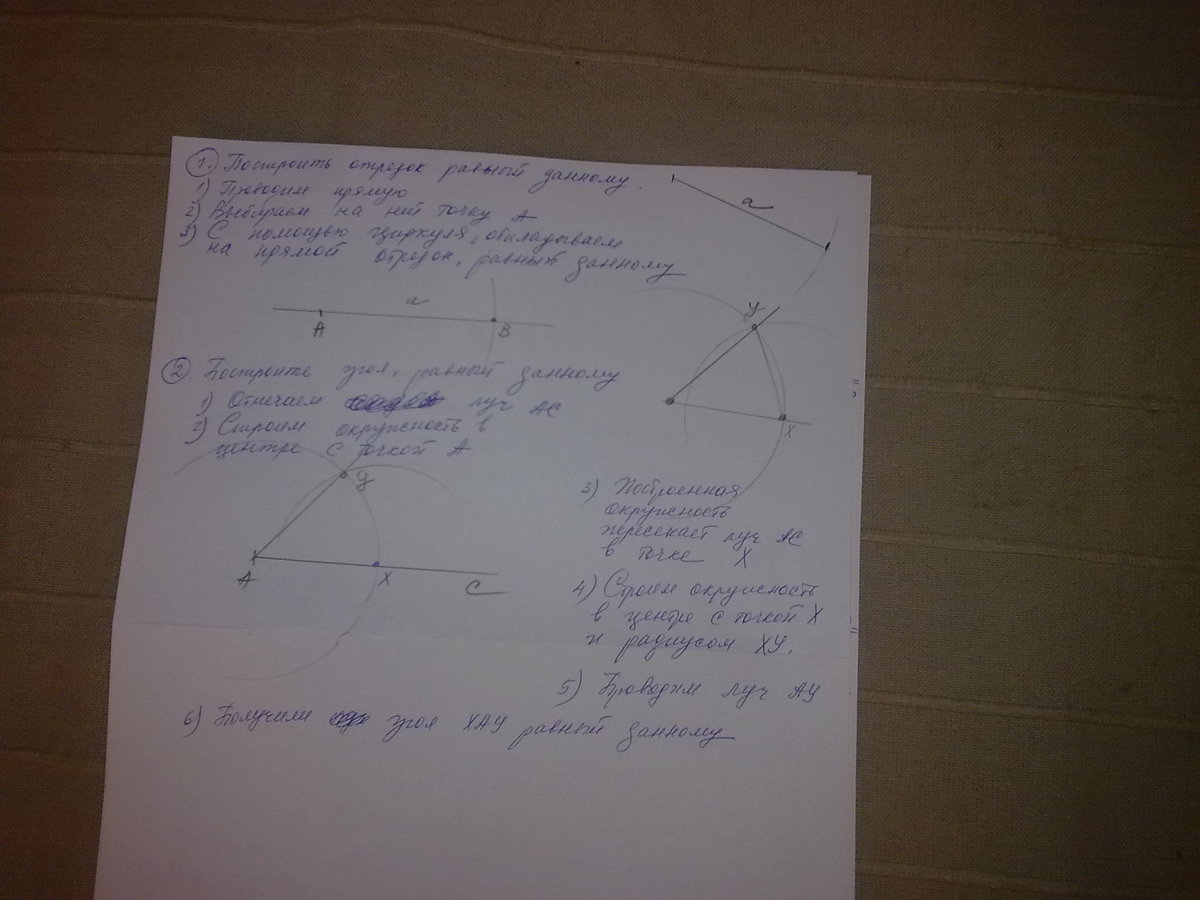 1. Построить отрезок равный данному.
1) Проводим прямую
2) Выбираем на ней точку А
3) С помощью циркуля, откладываем
на прямой отрезок, равный данному
a
a
A
B
2 Построить угол, равный данному
1) Отмечаем луч АС
2) Строим окружность в
центре с точкой А
У
X
У
A
X
C
3) Построенная
окружность
пересекает луч АС
в точке X
4) Строим окружность
в центре с точкой X
и радиусом ХУ.
5) Проводим луч АУ
6) Получили угол ХАУ равный данному